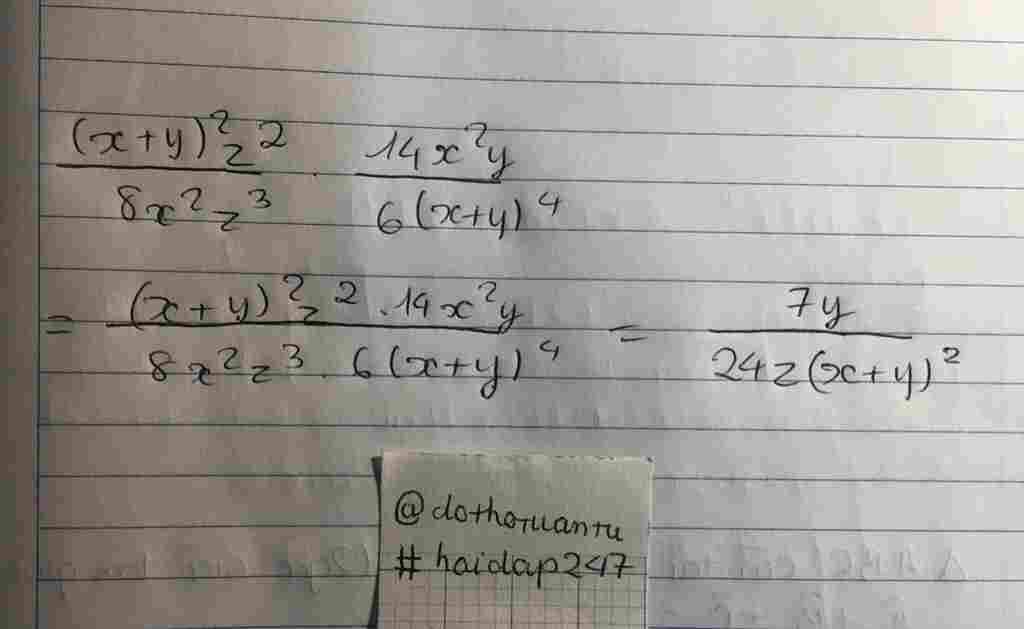 (x+y)²z² / 8x²z³ . 14x²y / 6(x+y)⁴
= (x+y)²z² . 14x²y / 8x²z³ . 6(x+y)⁴ = 7y / 24z(x+y)²
@dothotuantu
# haidap247